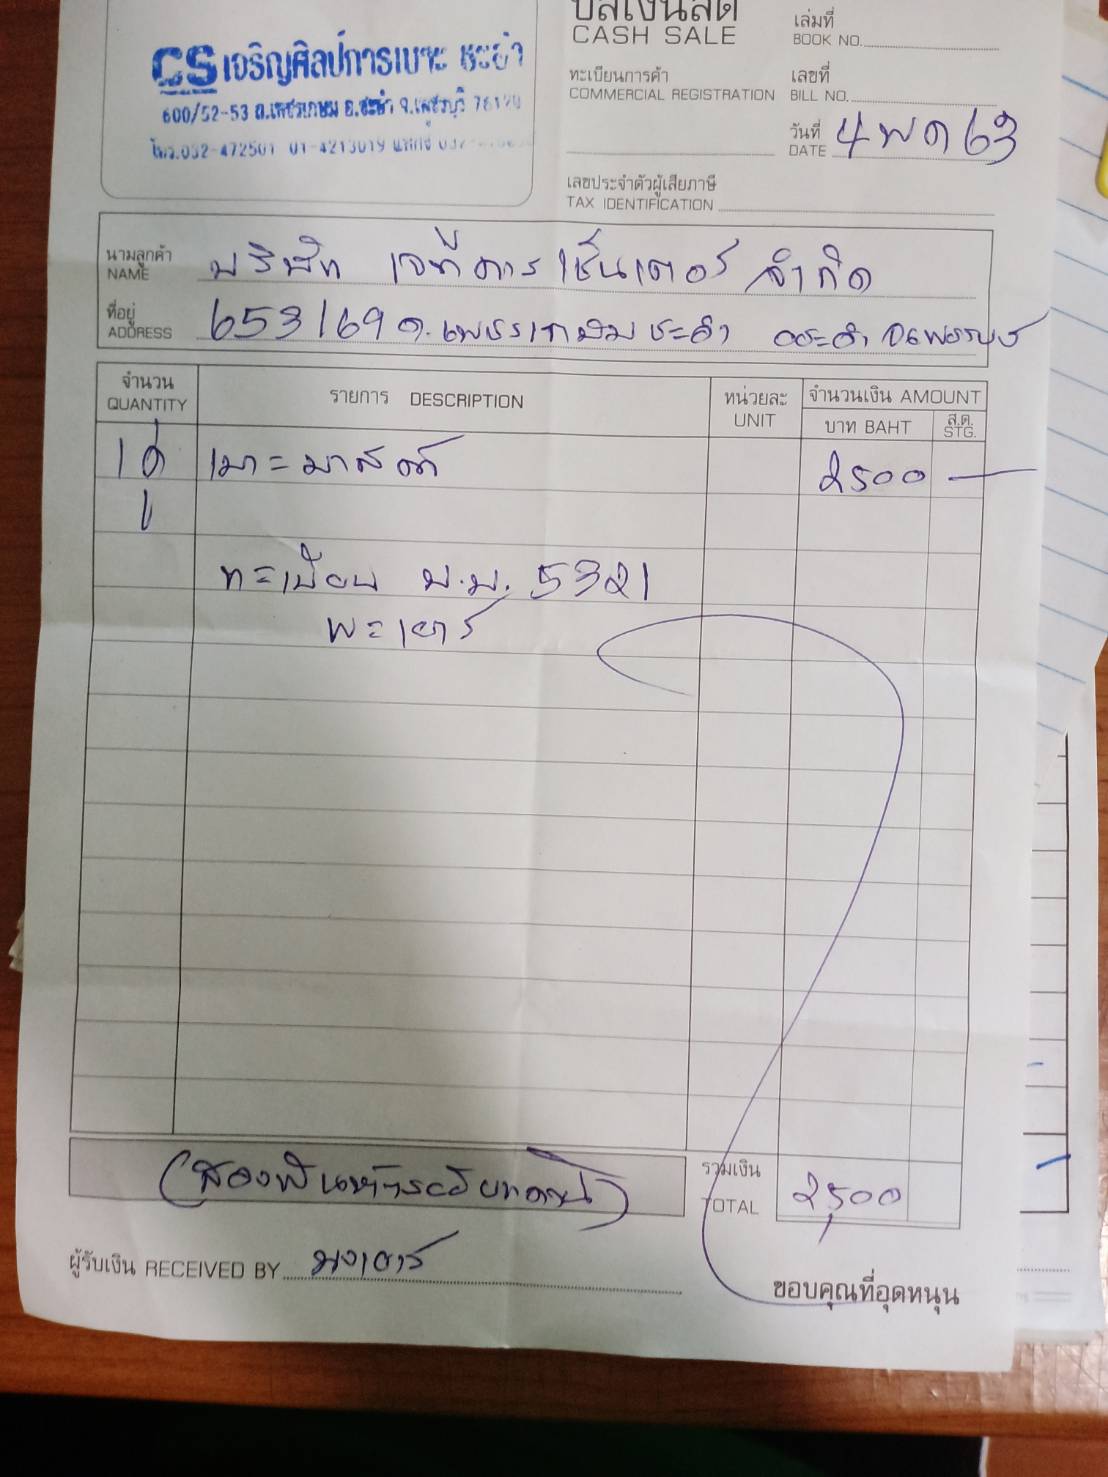 บิลเงินสด
CASH SALE
เล่มที่
BOOK NO.
CS เจริญศิลป์การเบาะ ชะอำ
600/52-53 ถ.เพชรเกษม อ.ชะอำ จ.เพชรบุรี 76120
โทร.032-472501 01-4213019
ทะเบียนการค้า
COMMERCIAL REGISTRATION
เลขที่
BILL NO.
วันที่
DATE 4 พค 63
เลขประจำตัวผู้เสียภาษี
TAX IDENTIFICATION
นามลูกค้า
NAME
บริษัท เจทีคาร์ เซ็นเตอร์ จำกัด
ที่อยู่
ADDRESS
653/69 ถ.เพชรเกษม ชะอำ อ.ชะอำ จ.เพชรบุรี
จำนวน
QUANTITY
รายการ DESCRIPTION
หน่วยละ
UNIT
จำนวนเงิน AMOUNT
บาท BAHT
ส.ต.
STG.
1 คู่ เบาะมาสด้า 2500 —
ทะเบียน บ.ม. 5321
พะเยาว์
(สองพันห้าร้อยบาทถ้วน)
รวมเงิน
TOTAL
2,500
ผู้รับเงิน RECEIVED BY
ขอบคุณที่อุดหนุน